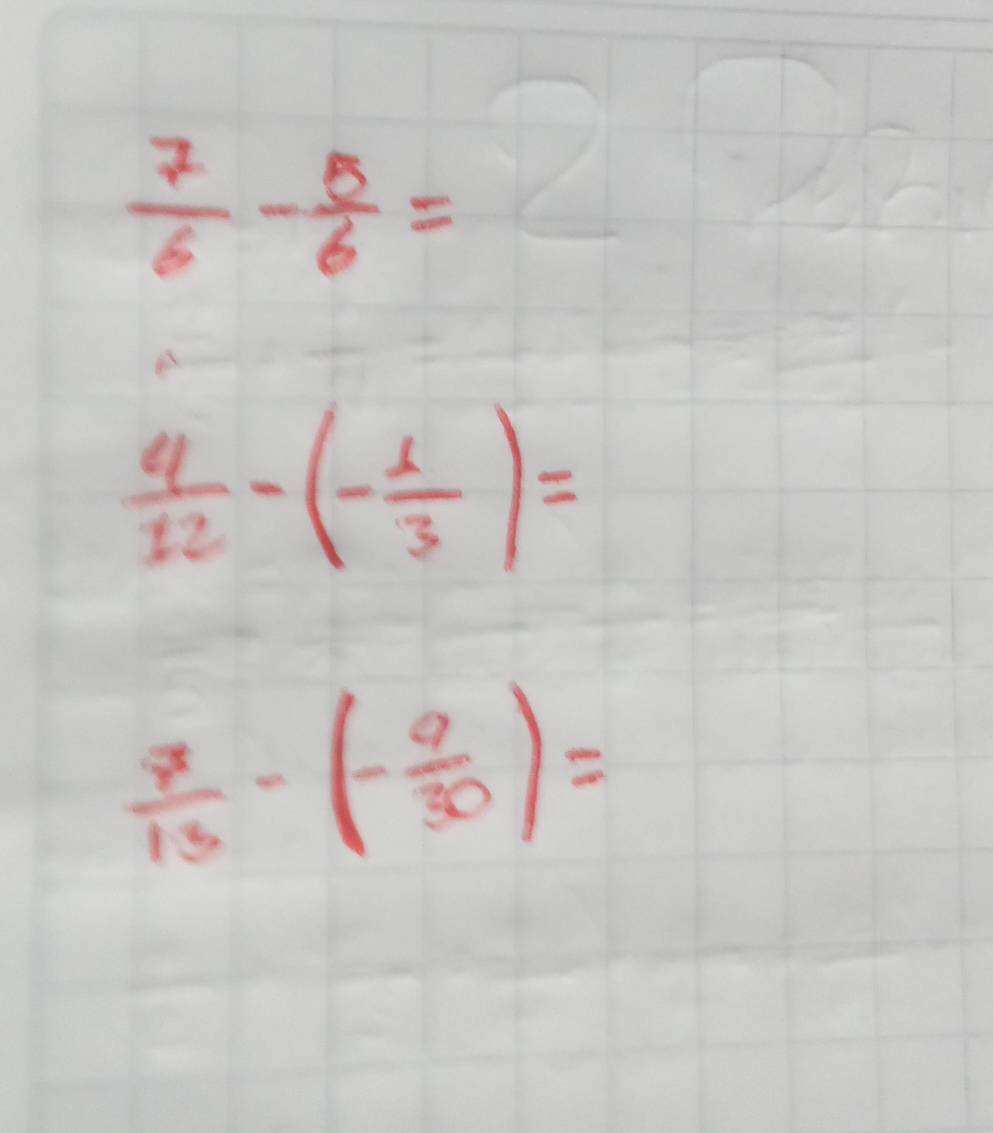 7/6 - 5/6 =
4/12 - (-1/3) =
7/13 - (-9/30) =